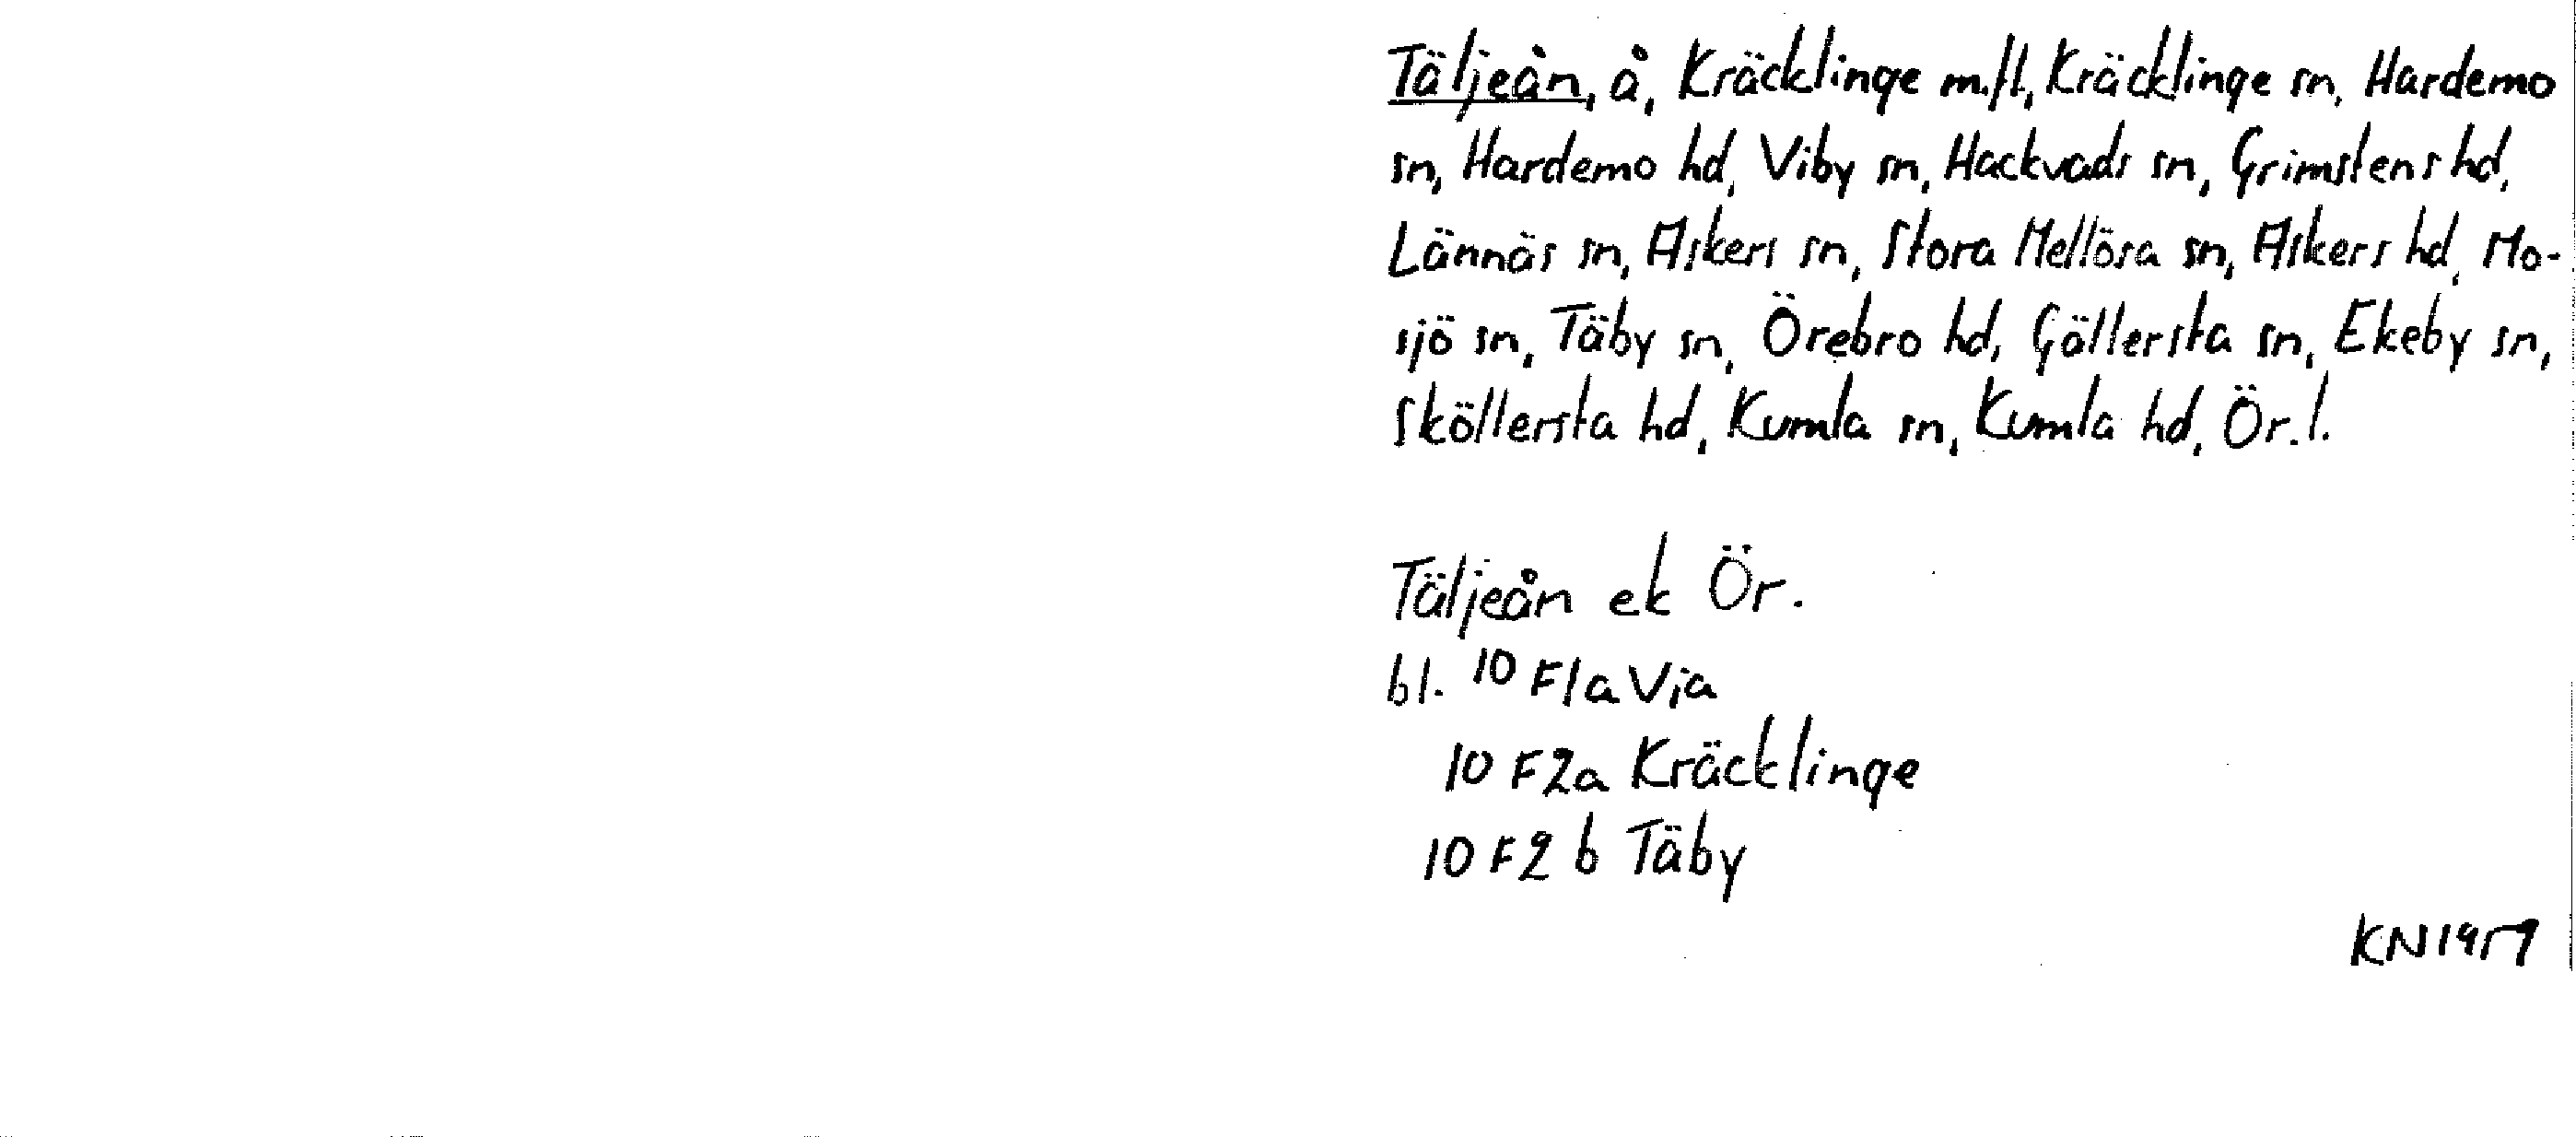 Täljeån, å, Kräcklinge m.fl., Kräcklinge sn, Hardemo
sn, Hardemo hd, Viby sn, Hackvads sn, Grimstens hd,
Lännäs sn, Askers sn, Stora Mellösa sn, Askers hd, Mo-
sjö sn, Täby sn, Örebro hd, Gällersta sn, Ekeby sn,
Sköllersta hd, Kumla sn, Kumla hd, Ör. l.
Täljeån ek Ör.
bl. 10 F1a Via
10 F2a Kräcklinge
10 F2 b Täby